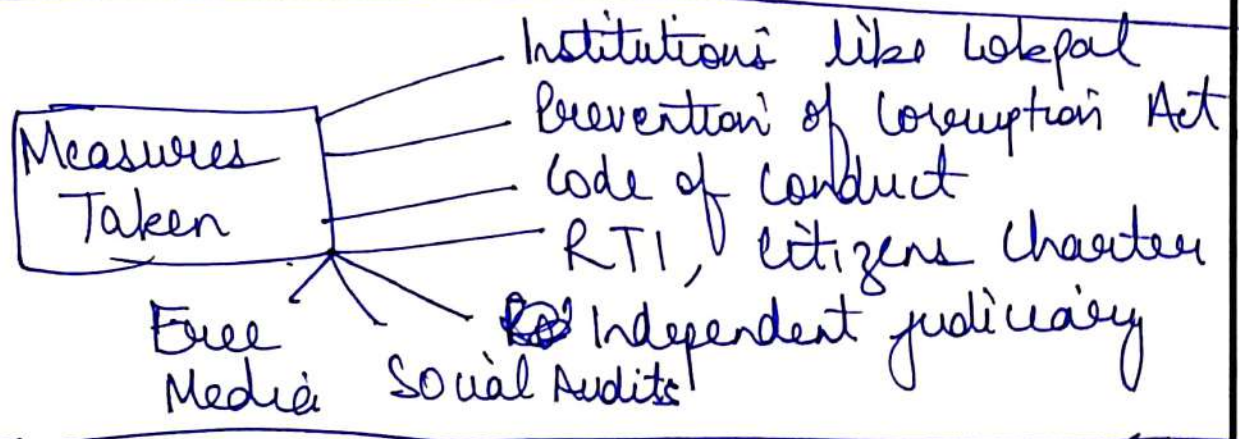 Measures
Taken
Institutions like Lokpal
Prevention of Corruption Act
Code of Conduct
RTI, Citizens Charter
Independent judiciary
Social Audits
Free
Media